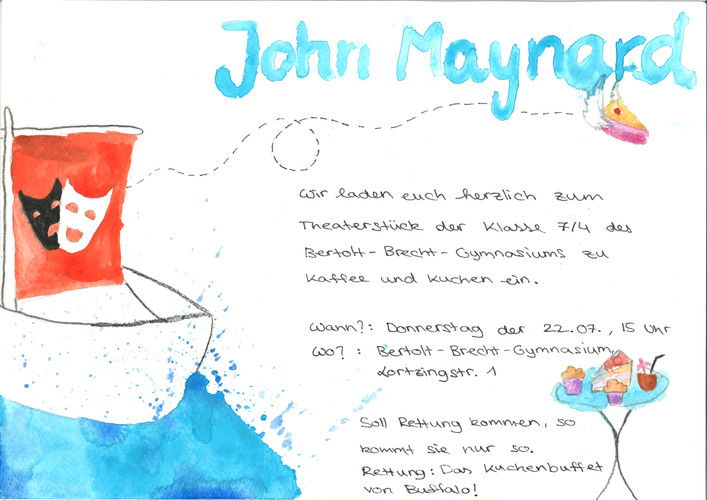 John Maynard
Wir laden euch herzlich zum
Theaterstück der Klasse 7/4 des
Bertolt-Brecht-Gymnasiums zu
Kaffee und Kuchen ein.
Wann?: Donnerstag der 22.07., 15 Uhr
Wo? : Bertolt-Brecht-Gymnasium,
Lortzingstr. 1
Soll Rettung kommen, so
kommt sie nur so.
Rettung: Das Kuchenbuffet
von Buffalo!